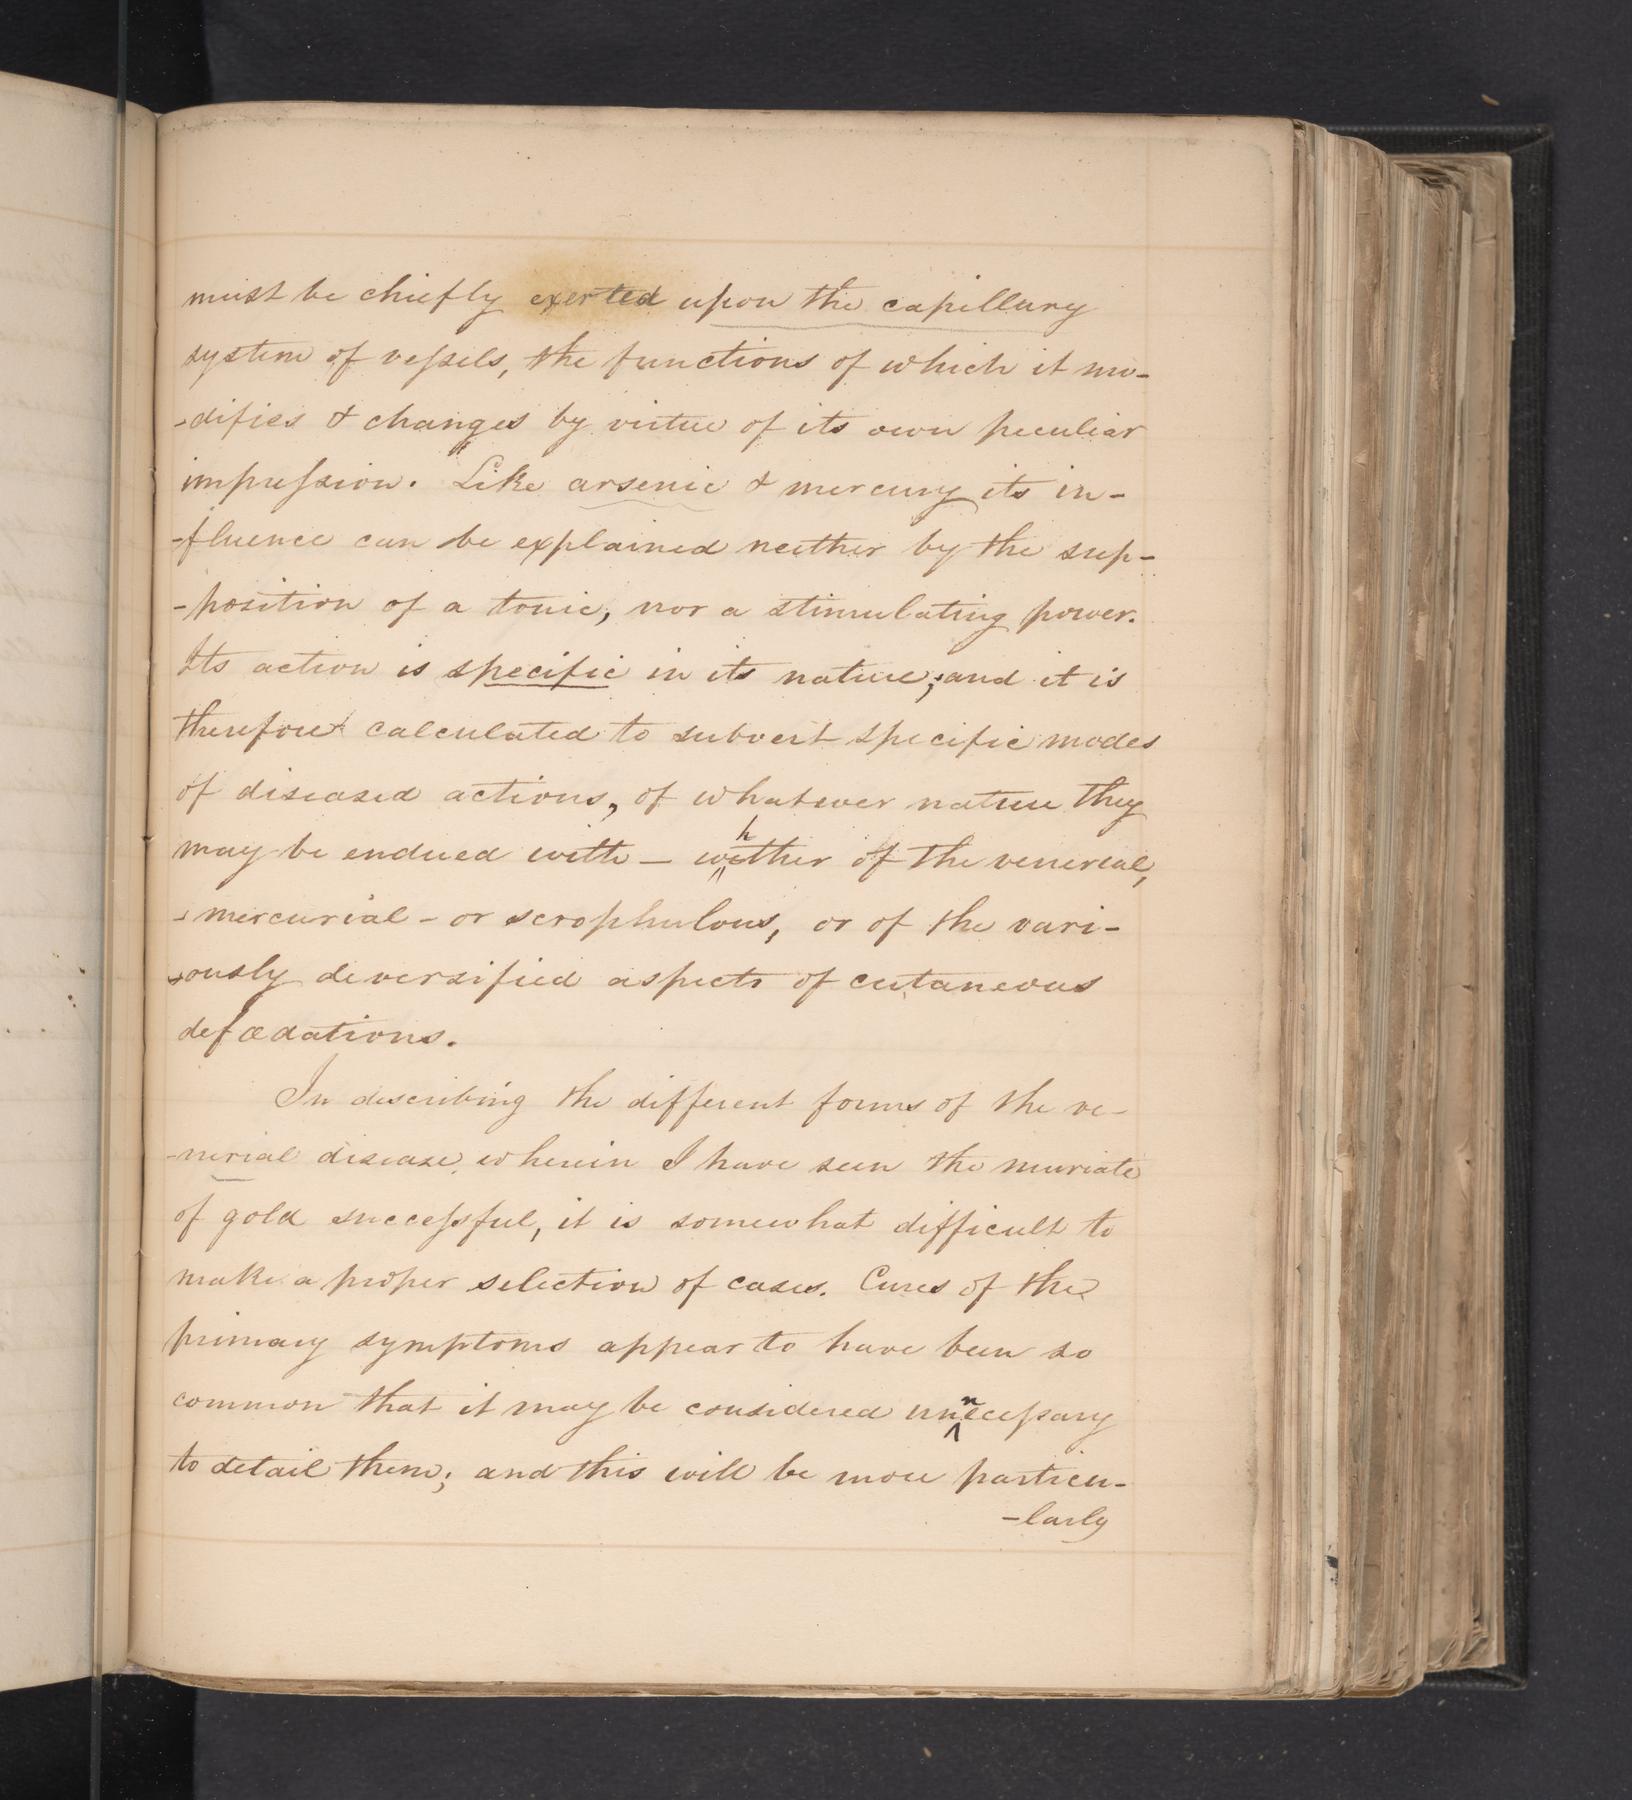 must be chiefly exerted upon the capillary
system of vessels, the functions of which it mo-
-difies & changes by virtue of its own peculiar
impression. Like arsenic & mercury its in-
-fluence can be explained neither by the sup-
-position of a tonic, nor a stimulating power.
Its action is specific in its nature; and it is
therefore calculated to subvert specific modes
of diseased actions, of whatever nature they
may be endued with — whether of the venereal,
- mercurial - or scrophulous, or of the vari-
-ously diversified aspects of cutaneous
defœdations.
In describing the different forms of the ve-
-nerial disease wherein I have seen the muriate
of gold successful, it is somewhat difficult to
make a proper selection of cases. Cures of the
primary symptoms appear to have been so
common that it may be considered unnecessary
to detail them; and this will be more particu-
-larly